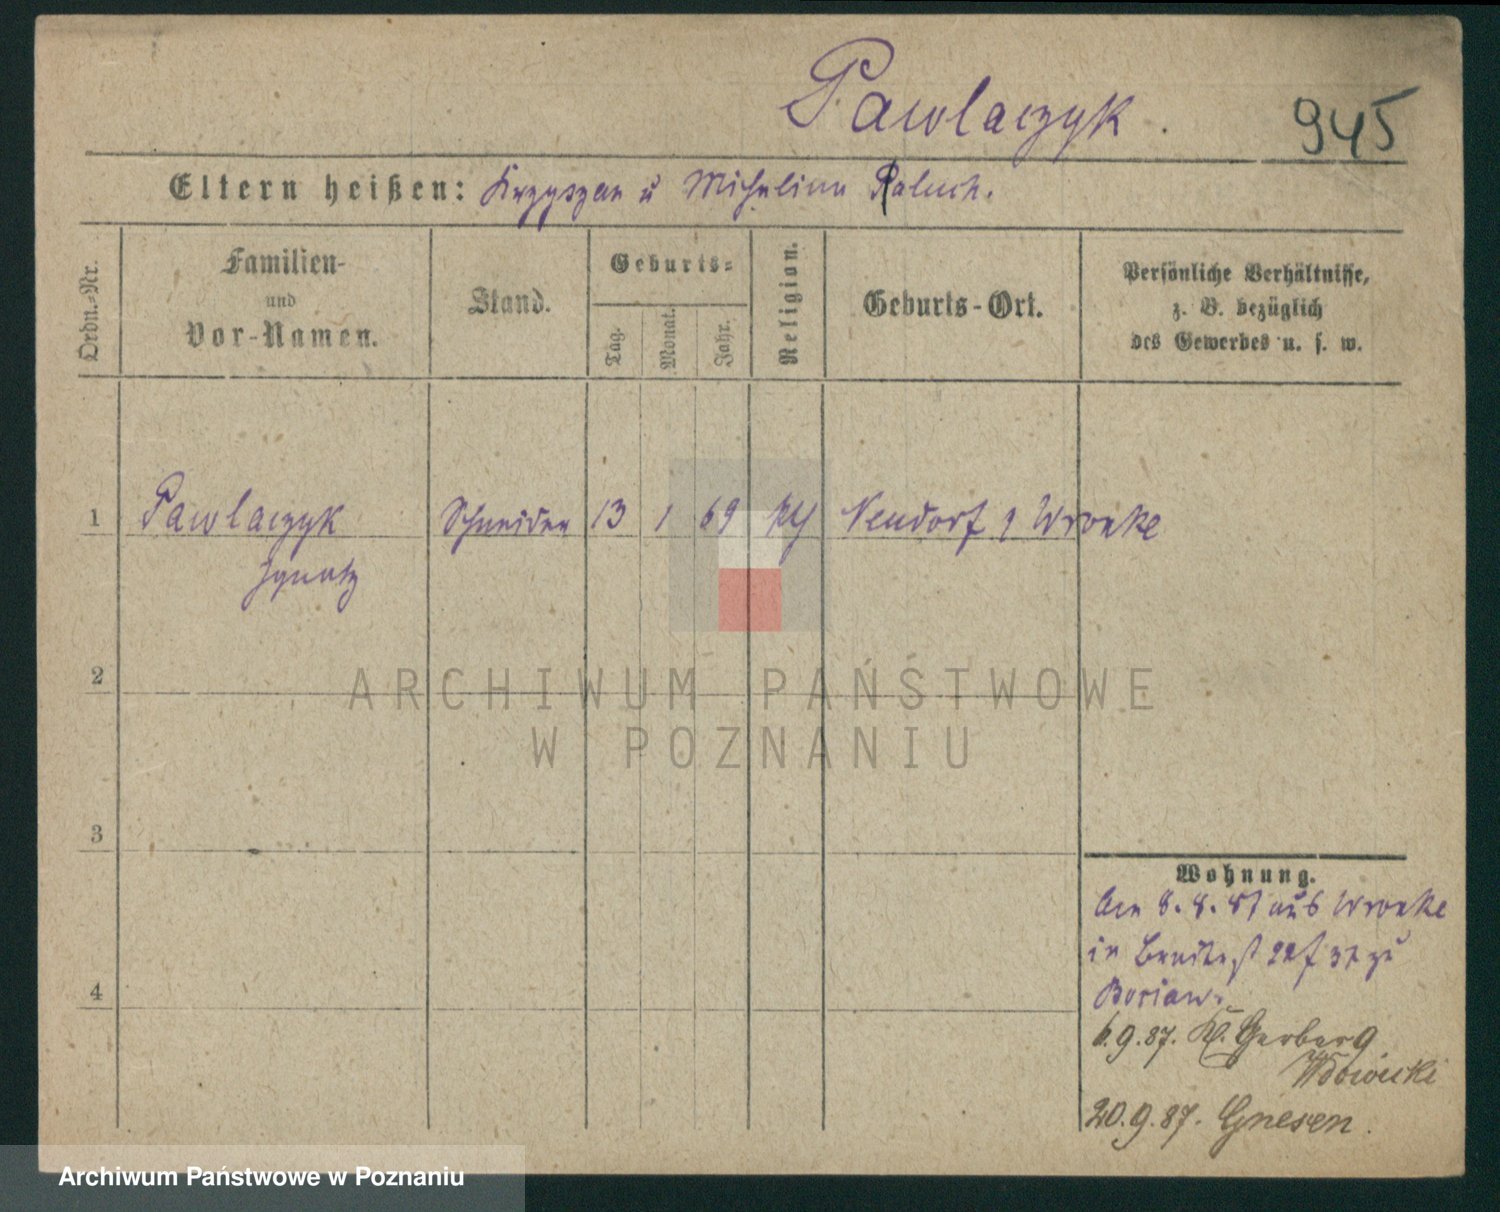 Pawlaczyk. 945
Eltern heißen: Krzyszan u Michalina Paluch.
Ordn.-Nr.
Familien-
und
Vor-Namen.
Stand.
Geburts-
Tag.
Monat.
Jahr.
Religion.
Geburts-Ort.
Persönliche Verhältnisse,
z. B. bezüglich
des Gewerbes u. s. w.
1 Pawlaczyk Schneider 13 1 69 Neudorf Wronke
Ignatz
2
ARCHIWUM PAŃSTWOWE
W POZNANIU
3
4
Wohnung.
8.8.87 aus Wronke
in Breitest zu
6.9.87. Kl. Gerberg
20.9.87. Gnesen.
Archiwum Państwowe w Poznaniu